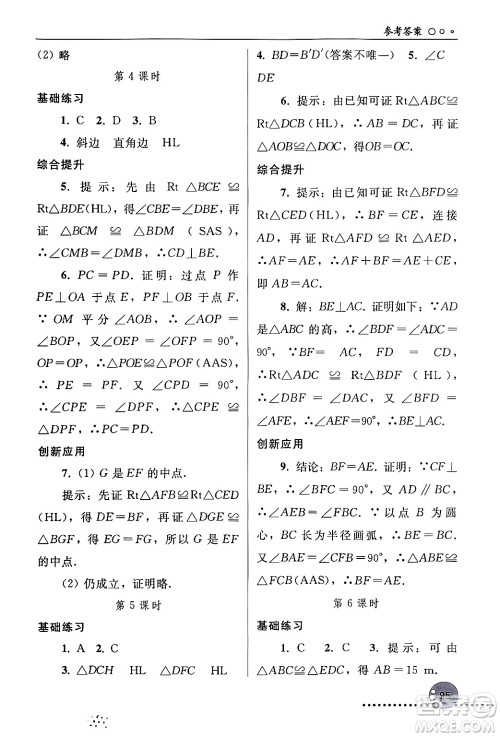 参考答案
(2) 略
第 4 课时
基础练习
1. C 2. D 3. B
4. 斜边 直角边 HL
综合提升
5. 提示：先由 Rt △BCE≌
Rt△BDE(HL)，得∠CBE=∠DBE，再
证 △BCM ≌ △BDM (SAS)，
∴∠CMB=∠DMB，∴CD⊥BE.
6. PC=PD. 证明：过点 P 作
PE⊥OA于点E，PF⊥OB于点F.
∵ OM 平分 ∠AOB，∴ ∠AOP =
∠BOP，又∠OEP=∠OFP=90°，
OP=OP，∴△POE≌△POF(AAS)，
∴ PE = PF. 又 ∠CPD = 90°，
∴∠CPE = ∠DPF，∴ △CPE ≌
△DPF，∴PC=PD.
创新应用
7. (1) G 是 EF 的中点.
提示：先证 Rt△AFB≌Rt△CED
(HL)，得 DE=BF，再证△DGE≌
△BGF，得 EG=FG，所以 G 是 EF
的中点.
(2) 仍成立，证明略.
第 5 课时
基础练习
1. A 2. C
3. △DCH HL △DCB HL
4. BD=B′D′(答案不唯一) 5. ∠C
DE
6. 提示：由已知可证 Rt△ABC≌
Rt△DCB(HL)，∴AB=DC，再证
△AOB≌△DOC.
综合提升
7. 提示：由已知可证 Rt△BFD≌
Rt△CED，∴DF=DE，BF=CE，连接
AD，再证 Rt△ADF≌Rt△ADE，
∴ AF = AE，∴ AF + BF = AE + CE，
∴AB=AC.
8. 解：BE⊥AC. 证明如下：∵AD
是△ABC 的高，∴∠BDF=∠ADC=
90°，又 BF = AC，FD = CD，
∴ Rt△BDF ≌ Rt△ADC (HL)，
∴∠DBF = ∠DAC，又 ∠AFE =
∠BFD，∴∠AEF=∠BDF=90°，
∴BE⊥AC.
创新应用
9. 结论：BF=AE. 证明：∵CF⊥
BE，∴∠BFC=90°，又 AD∥BC，
∴∠AEB=∠FBC，∵以点 B 为圆
心，BC 长为半径画弧，∴BE=BC，
∴△BAE≌△CFB(AAS)，∴BF=AE.
第 6 课时
基础练习
1. B 2. C 3. 提示：可由
△ABC≌△DEC，得 AB=15 m.
95